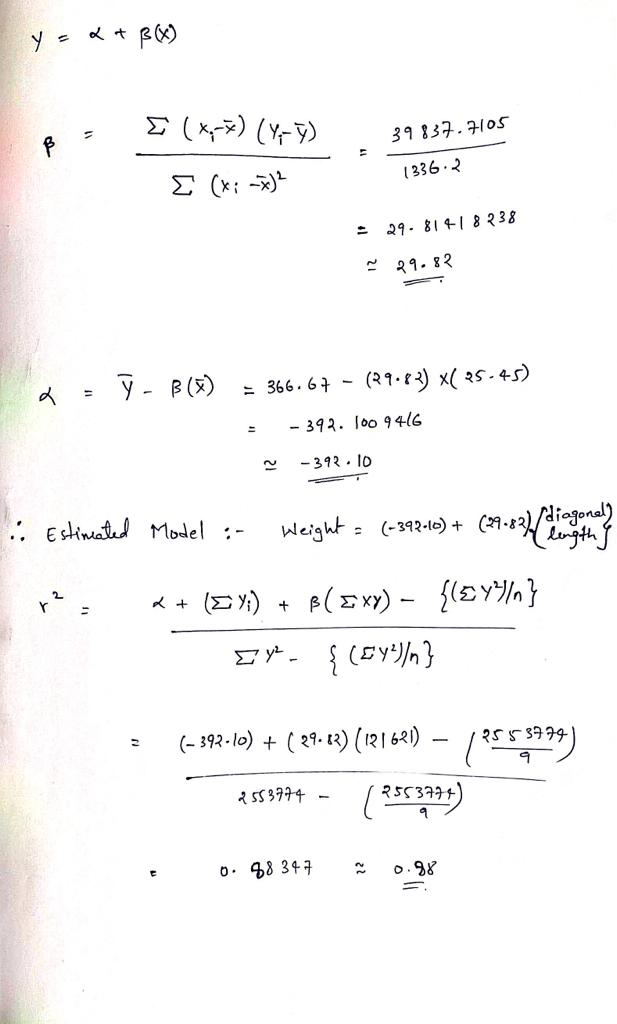 y = α + β(x)
β = Σ (xi-x̄) (Yi-ȳ) / Σ (xi -x̄)² = 39837.7105 / 1336.2
= 29.81418238
≃ 29.82
α = ȳ - β(x̄) = 366.67 - (29.82) x( 25.45)
= - 392. 1009416
≃ - 392.10
∴ Estimated Model :- Weight = (-392.10) + (29.82) {diagonal length}
r² = α + (ΣYi) + β(ΣXY) - {(ΣY²)/n} / ΣY² - {(ΣY²)/n}
= (-392.10) + (29.82) (121621) - (2553774 / 9) / 2553774 - (2553774 / 9)
= 0.98347 ≃ 0.98